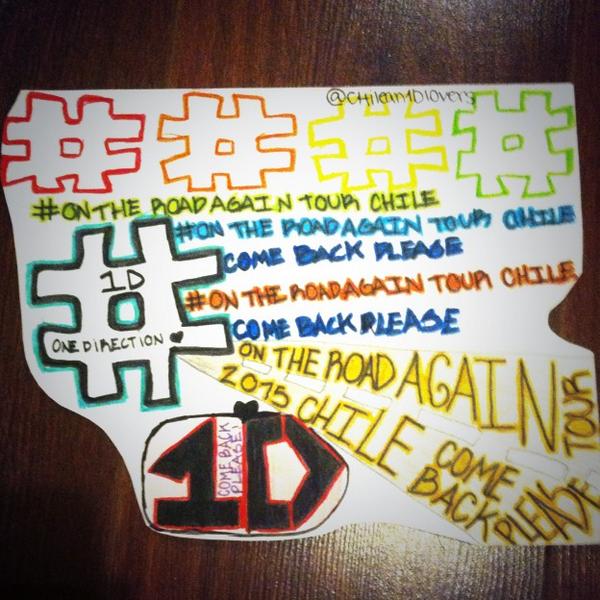 @chilean1Dlovers
# # # #
#ON THE ROAD AGAIN TOUR CHILE
#ON THE ROAD AGAIN TOUR CHILE
COME BACK PLEASE
#ON THE ROAD AGAIN TOUR CHILE
COME BACK PLEASE
#
1D
ONE DIRECTION ♥
ON THE ROAD AGAIN TOUR
2015 CHILE COME
BACK PLEASE
1D
COME BACK
PLEASE!